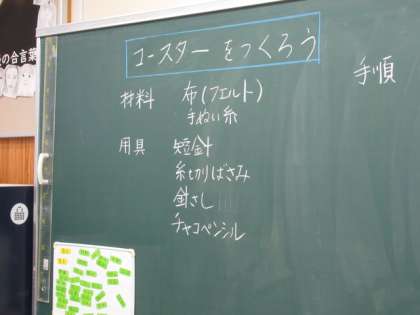 の合言葉
コースターをつくろう
手順
材料 布(フェルト)
手ぬい糸
用具 短針
糸切りばさみ
針さし
チャコペンシル